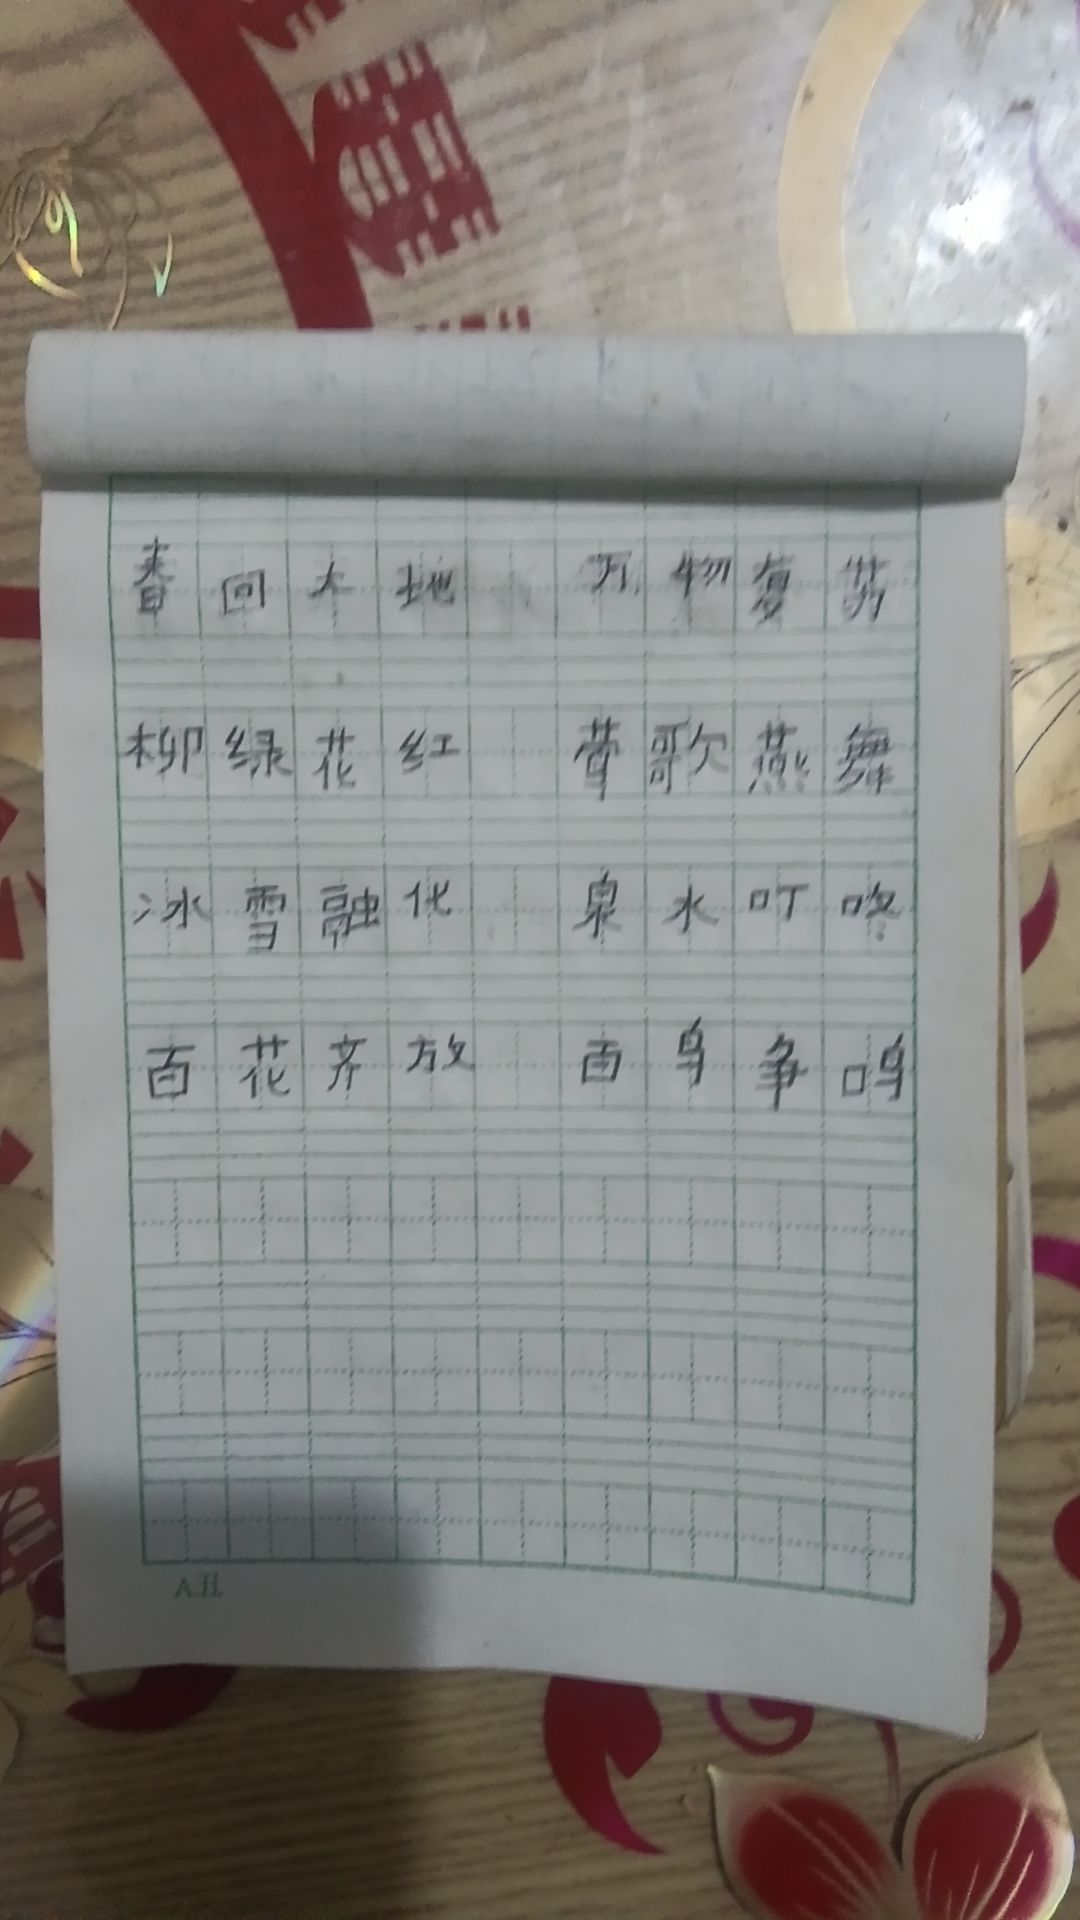 春回大地 万物复苏
柳绿花红 莺歌燕舞
冰雪融化 泉水叮咚
百花齐放 百鸟争鸣